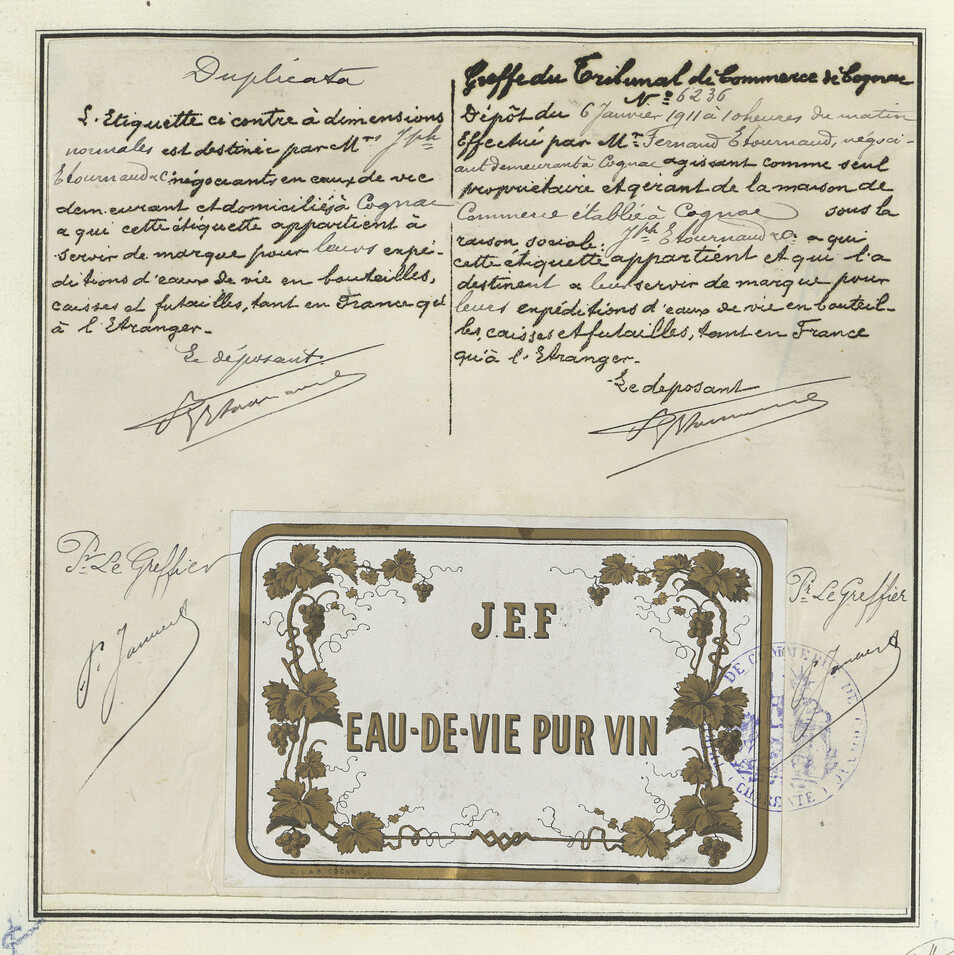 Duplicata
L'Etiquette ci contre à dimensions
normales est destinée par Mrs Jph
Etournaud & Cie négociants en eaux de vie
demeurant et domiciliés à Cognac
a qui cette étiquette appartient à
servir de marque pour leurs expé-
ditions d'eaux de vie en bouteilles,
caisses et futailles, tant en France qu'
à l'Etranger.-
Le déposant.
Greffe du Tribunal de Commerce de Cognac
N° 6236
Dépôt du 6 Janvier 1911 à 10 heures du matin
Effectué par Mr Fernand Etournaud, négoci-
ant demeurant à Cognac agissant comme seul
propriétaire et gérant de la maison de
Commerce établie à Cognac sous la
raison sociale: Jph Etournaud & Cie a qui
cette étiquette appartient et qui l'a
destinent a leur servir de marque pour
leurs expéditions d'eaux de vie en bouteil-
les, caisses et futailles, tant en France
qu'à l'Etranger.-
Le deposant
Pr Le Greffier
Pr Le Greffier
J.E.F
EAU-DE-VIE PUR VIN
COGNAC
DE COMMERCE DE COGNAC
CHARENTE